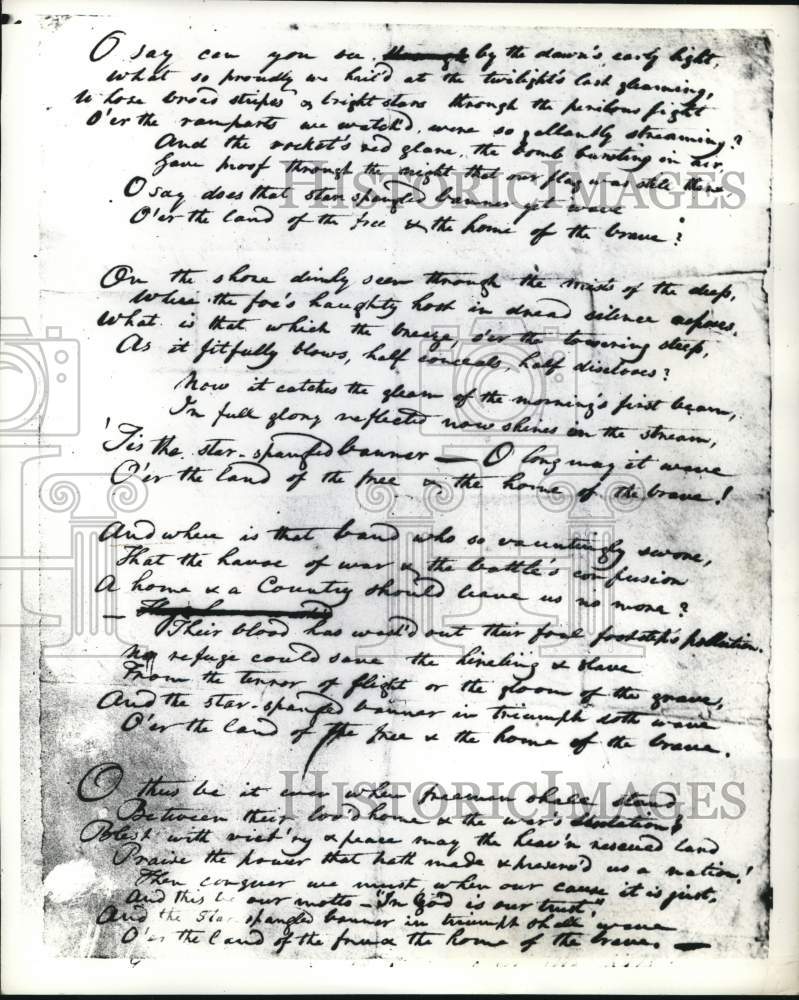 O say can you see, ~~through~~ by the dawn's early light,
What so proudly we hail'd at the twilight's last gleaming,
Whose broad stripes & bright stars through the perilous fight
O'er the ramparts we watch'd, were so gallantly streaming?
And the rocket's red glare, the bomb bursting in air,
Gave proof through the night that our flag was still there
O say does that star-spangled banner yet wave
O'er the land of the free & the home of the brave?
On the shore dimly seen through the mists of the deep,
Where the foe's haughty host in dread silence reposes,
What is that which the breeze, o'er the towering steep,
As it fitfully blows, half conceals, half discloses?
Now it catches the gleam of the morning's first beam,
In full glory reflected now shines in the stream,
'Tis the star-spangled banner — O long may it wave
O'er the land of the free & the home of the brave!
And where is that band who so vauntingly swore,
That the havoc of war & the battle's confusion
A home & a Country should leave us no more?
—
Their blood has wash'd out their foul footstep's pollution.
No refuge could save the hireling & slave
From the terror of flight or the gloom of the grave,
And the star-spangled banner in triumph doth wave
O'er the land of the free & the home of the brave.
O thus be it ever when freemen shall stand
Between their lov'd home & the war's desolation!
Blest with vict'ry & peace may the heav'n rescued land
Praise the power that hath made & preserv'd us a nation!
Then conquer we must, when our cause it is just,
And this be our motto — "In God is our trust,"
And the star-spangled banner in triumph shall wave
O'er the land of the free & the home of the brave. —
HISTORIC IMAGES
HISTORIC IMAGES